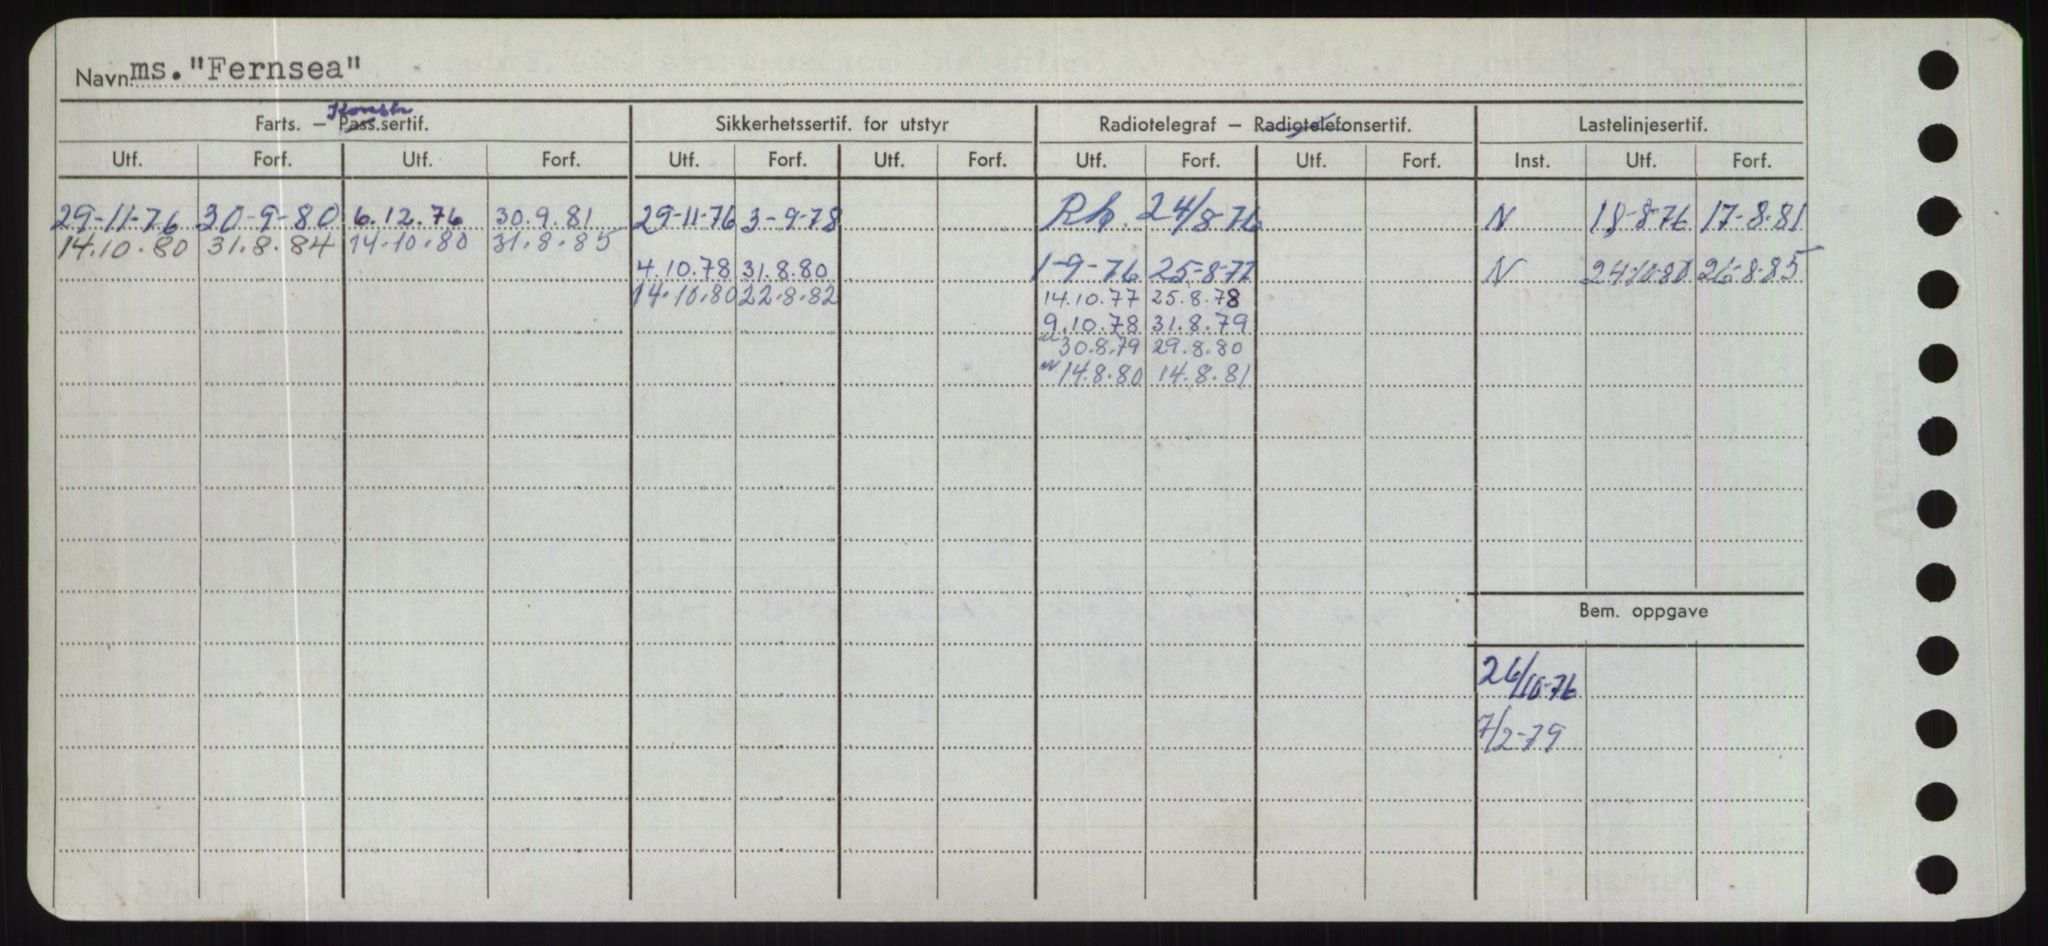 Navn ms. "Fernsea"
Konstr
Farts. — Pass.sertif. Sikkerhetssertif. for utstyr Radiotelegraf — Radiotelefonsertif. Lastelinjesertif.
Utf. Forf. Utf. Forf. Utf. Forf. Utf. Forf. Utf. Forf. Utf. Forf. Inst. Utf. Forf.
29-11-76 30-9-80 6.12.76 30.9.81 29-11-76 3-9-78 Rh. 24/8-76 N 18-8-76 17-8-81
14.10.80 31.8.84 14.10.80 31.8.85
4.10.78 31.8.80 1-9-76 25-8-77 N 24-10-80 26-8-85
14.10.80 22.8.82 14.10.77 25.8.78
9.10.78 31.8.79
30.8.79 29.8.80
N 14.8.80 14.8.81
Bem. oppgave
26/10-76
7/2-79